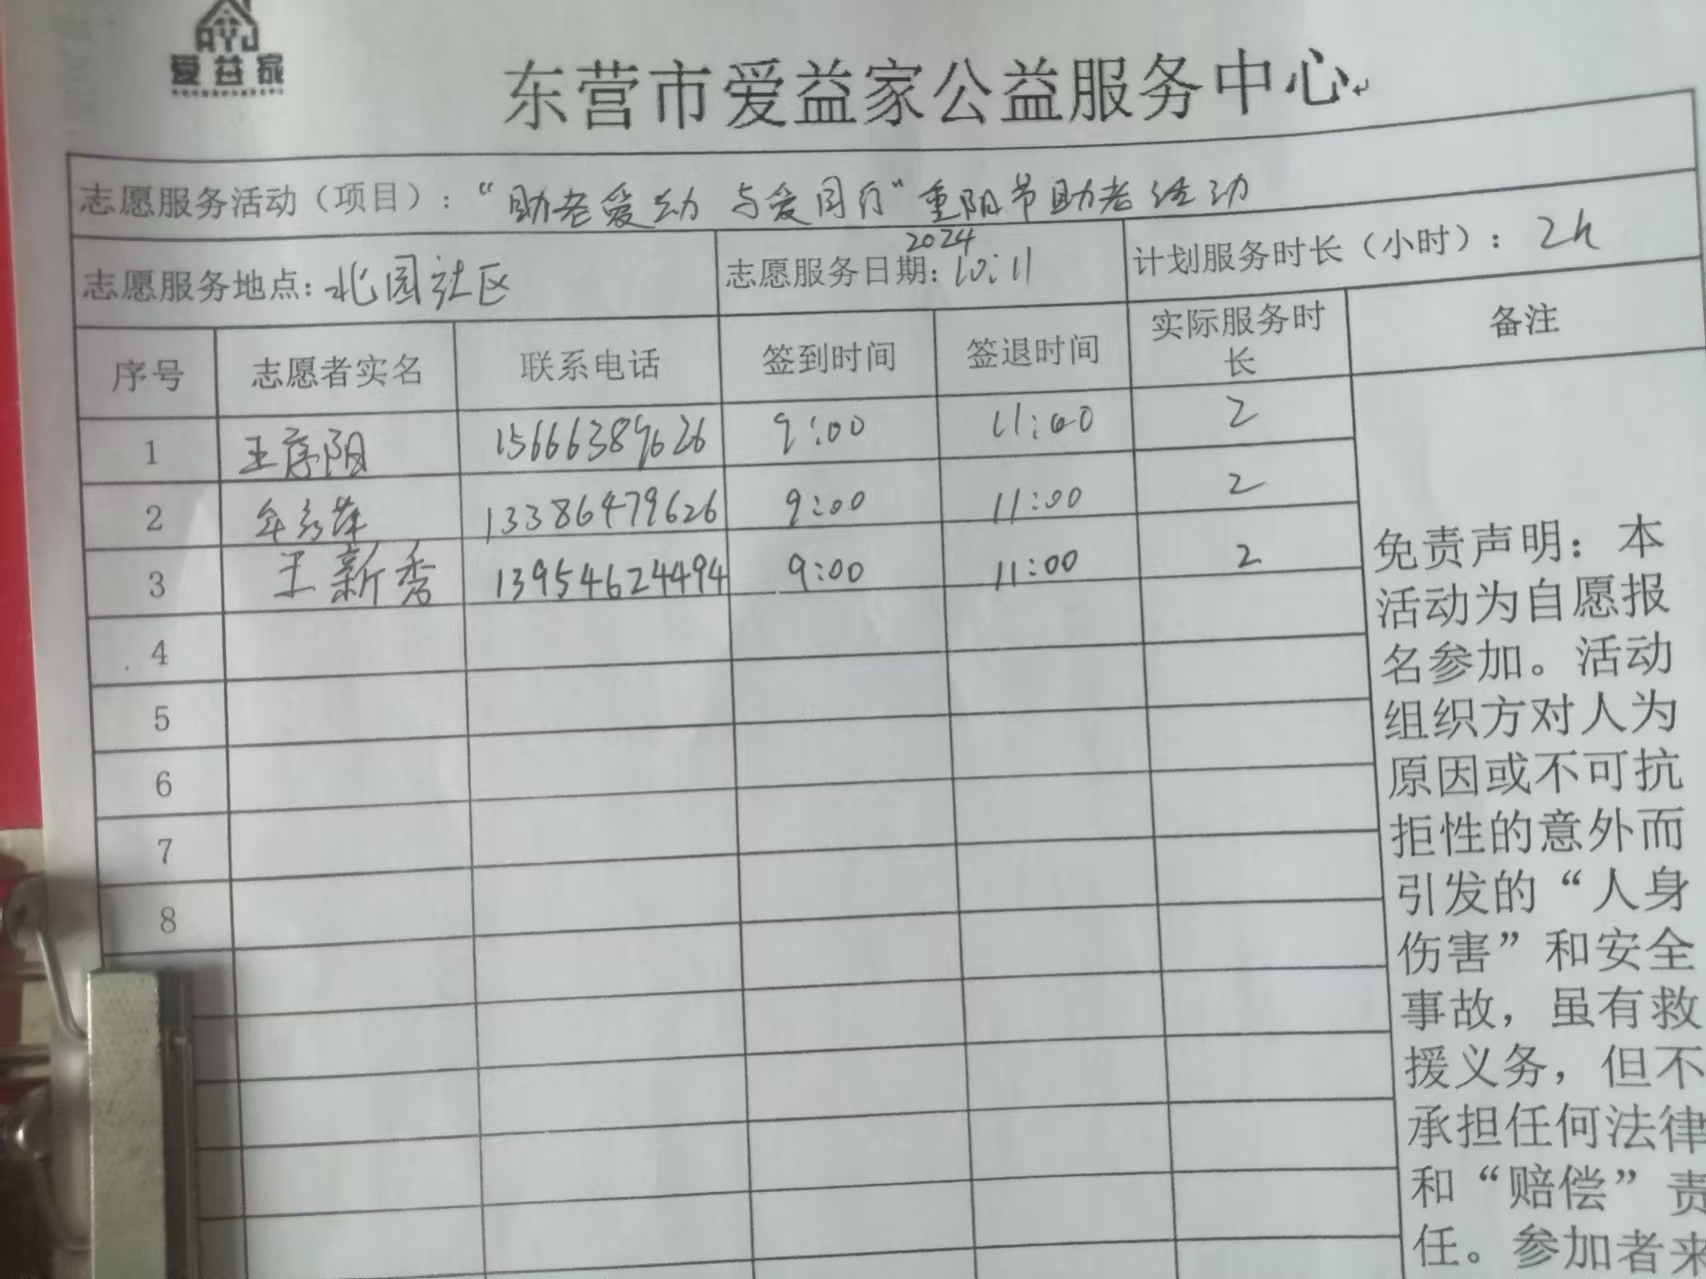 AYJ
爱益家
东营市爱益家公益服务中心
志愿服务活动（项目）：“助老爱动 与爱同行”重阳节助老活动
志愿服务地点：北园社区 志愿服务日期：2024 10:11 计划服务时长（小时）：2h
序号 志愿者实名 联系电话 签到时间 签退时间 实际服务时长 备注
1 王序阳 15666389626 9:00 11:00 2
2 13386479626 9:00 11:00 2
3 王新香 13954624494 9:00 11:00 2
4
5
6
7
8
免责声明：本
活动为自愿报
名参加。活动
组织方对人为
原因或不可抗
拒性的意外而
引发的“人身
伤害”和安全
事故，虽有救
援义务，但不
承担任何法律
和“赔偿”责
任。参加者来